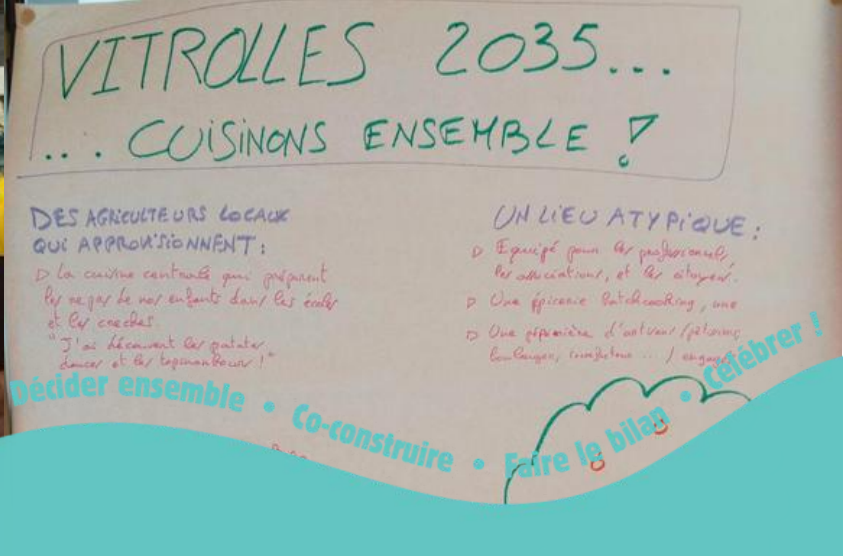 VITROLLES 2035...
... CUISINONS ENSEMBLE !
DES AGRICULTEURS LOCAUX
QUI APPROVISIONNENT :
▷ La cuisine centrale qui préparent
les repas de nos enfants dans les écoles
et les creches.
"J'ai découvert les patates
douces et les topinambours !"
UN LIEU ATYPIQUE :
▷ Equipé pour les professionnels,
les associations, et les citoyens.
▷ Une épicerie Batchcooking, une
▷ Une pépinière d'artisans (
boulanger, ... )
Décider ensemble • Co-construire • Faire le bilan • Célébrer !